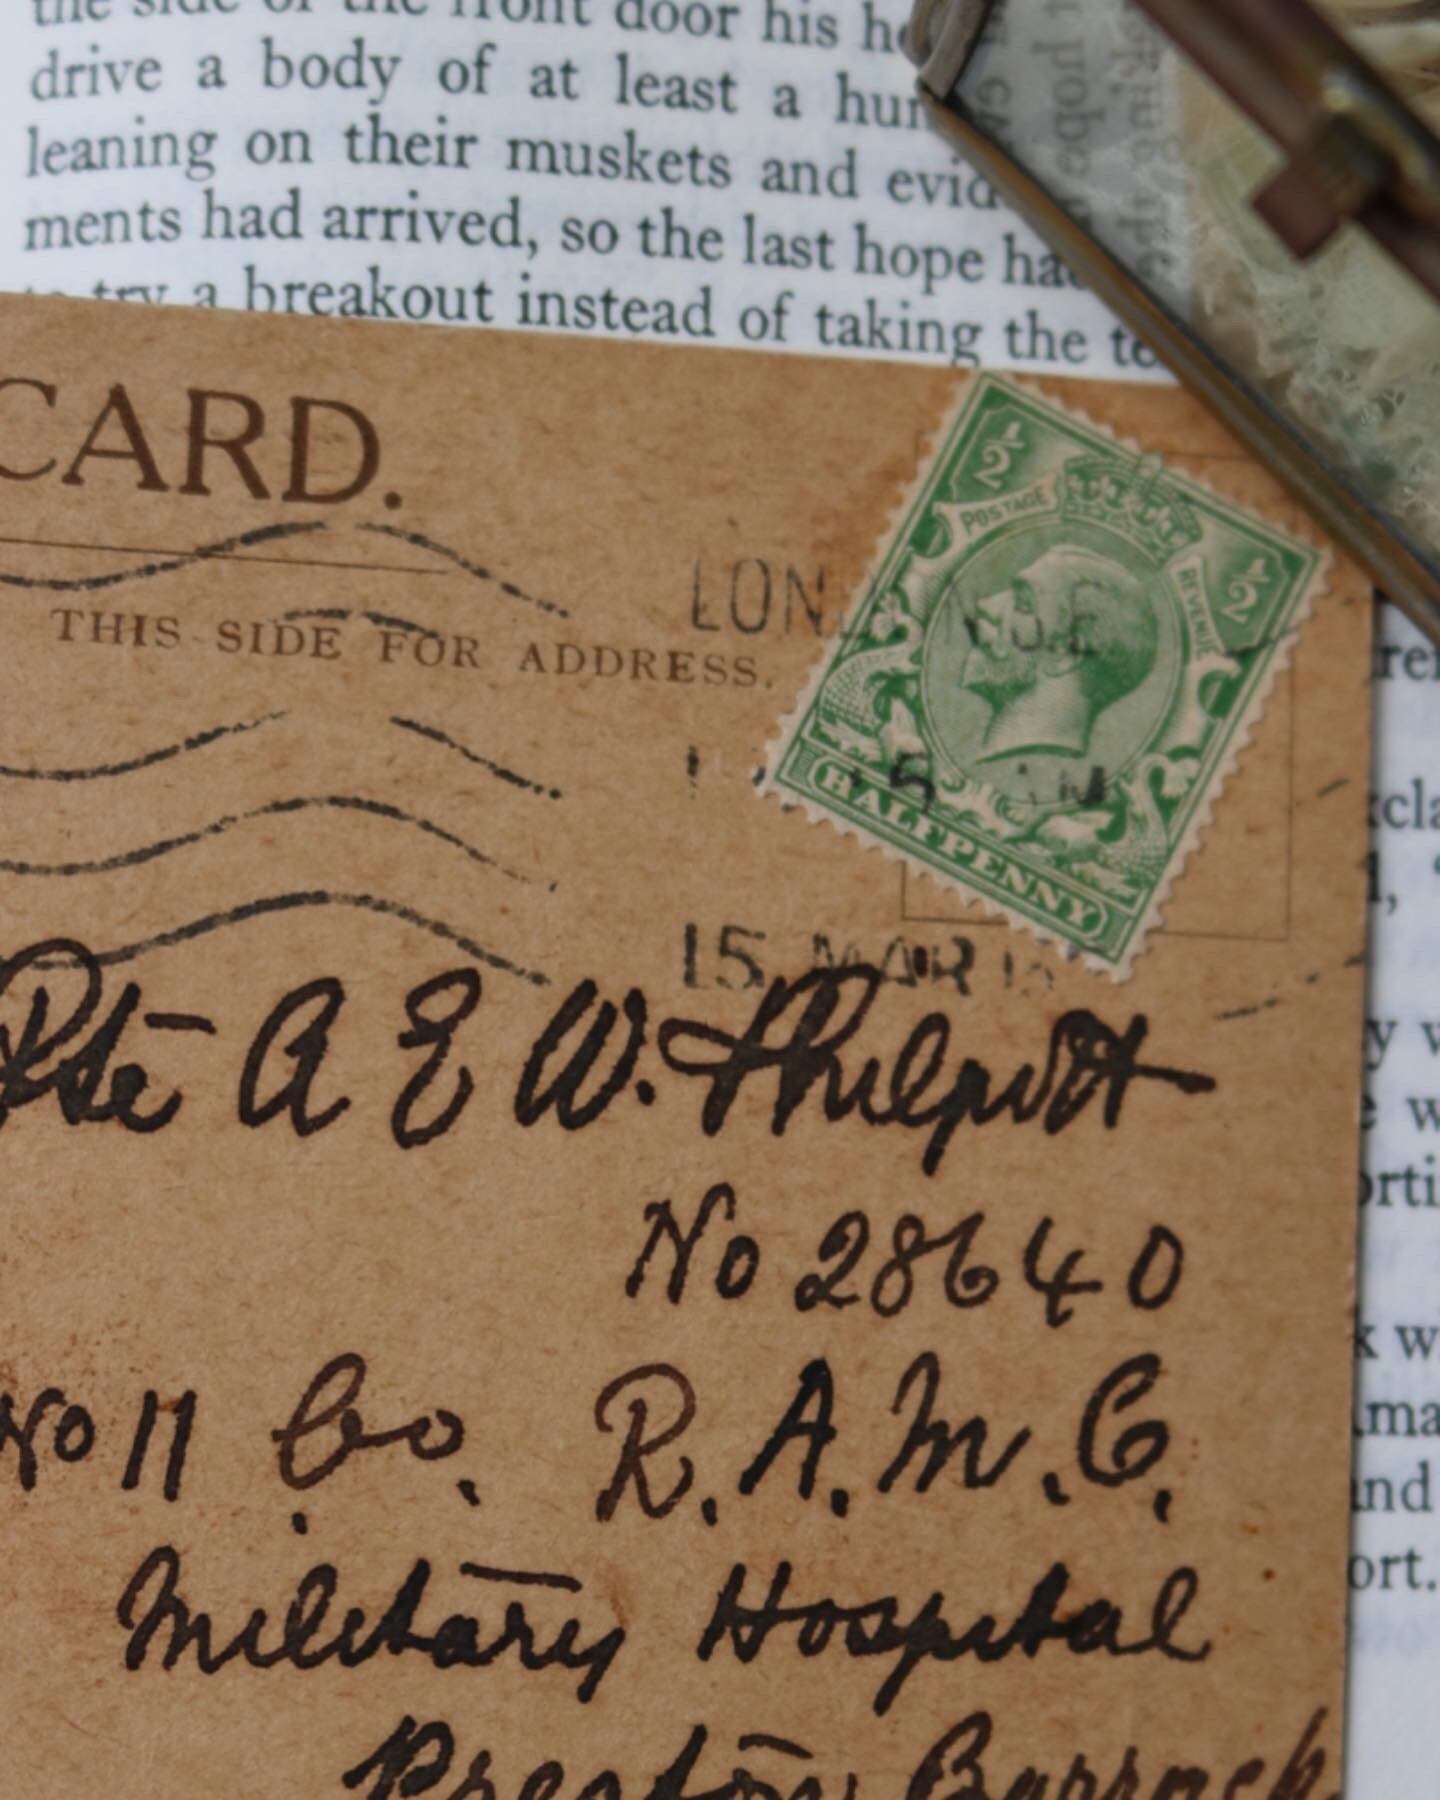 the side of the front door his
drive a body of at least a
leaning on their muskets and
ments had arrived, so the last hope had
to try a breakout instead of taking the
CARD.
THIS SIDE FOR ADDRESS.
1/2 POSTAGE REVENUE 1/2
HALFPENNY
S.E.
15 MAR
Pte A E W. Philpott
No 28640
No 11 Co. R.A.M.C.
Military Hospital
Preston Barrack